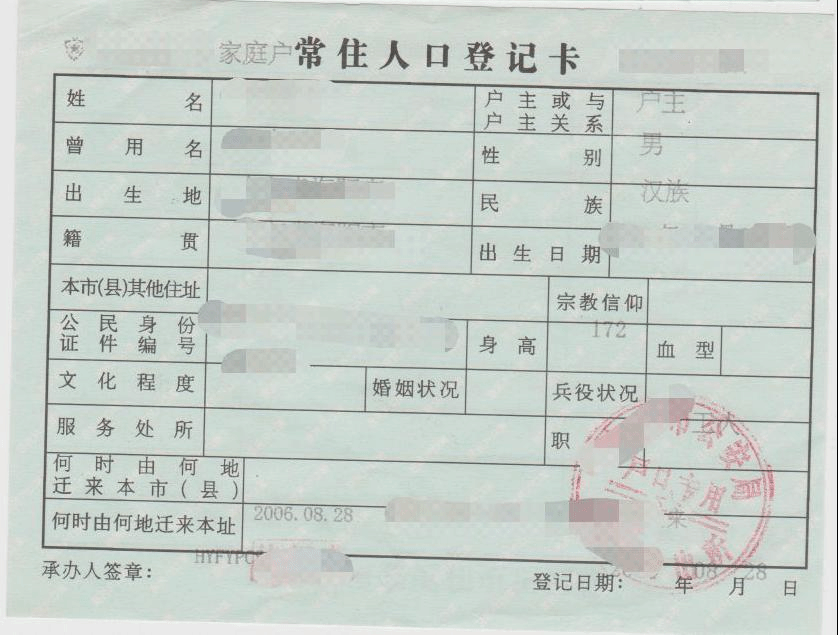 家庭户 常住人口登记卡
姓名 户主或与户主关系 户主
曾用名 性别 男
出生地 民族 汉族
籍贯 出生日期
本市(县)其他住址 宗教信仰
公民身份证件编号 身高 172 血型
文化程度 婚姻状况 兵役状况
服务处所 职 工人
何时由何地迁来本市(县)
何时由何地迁来本址 2006.08.28 来
承办人签章: HYFYPC 登记日期: 年 08 月 28 日
市公安局
户口专用